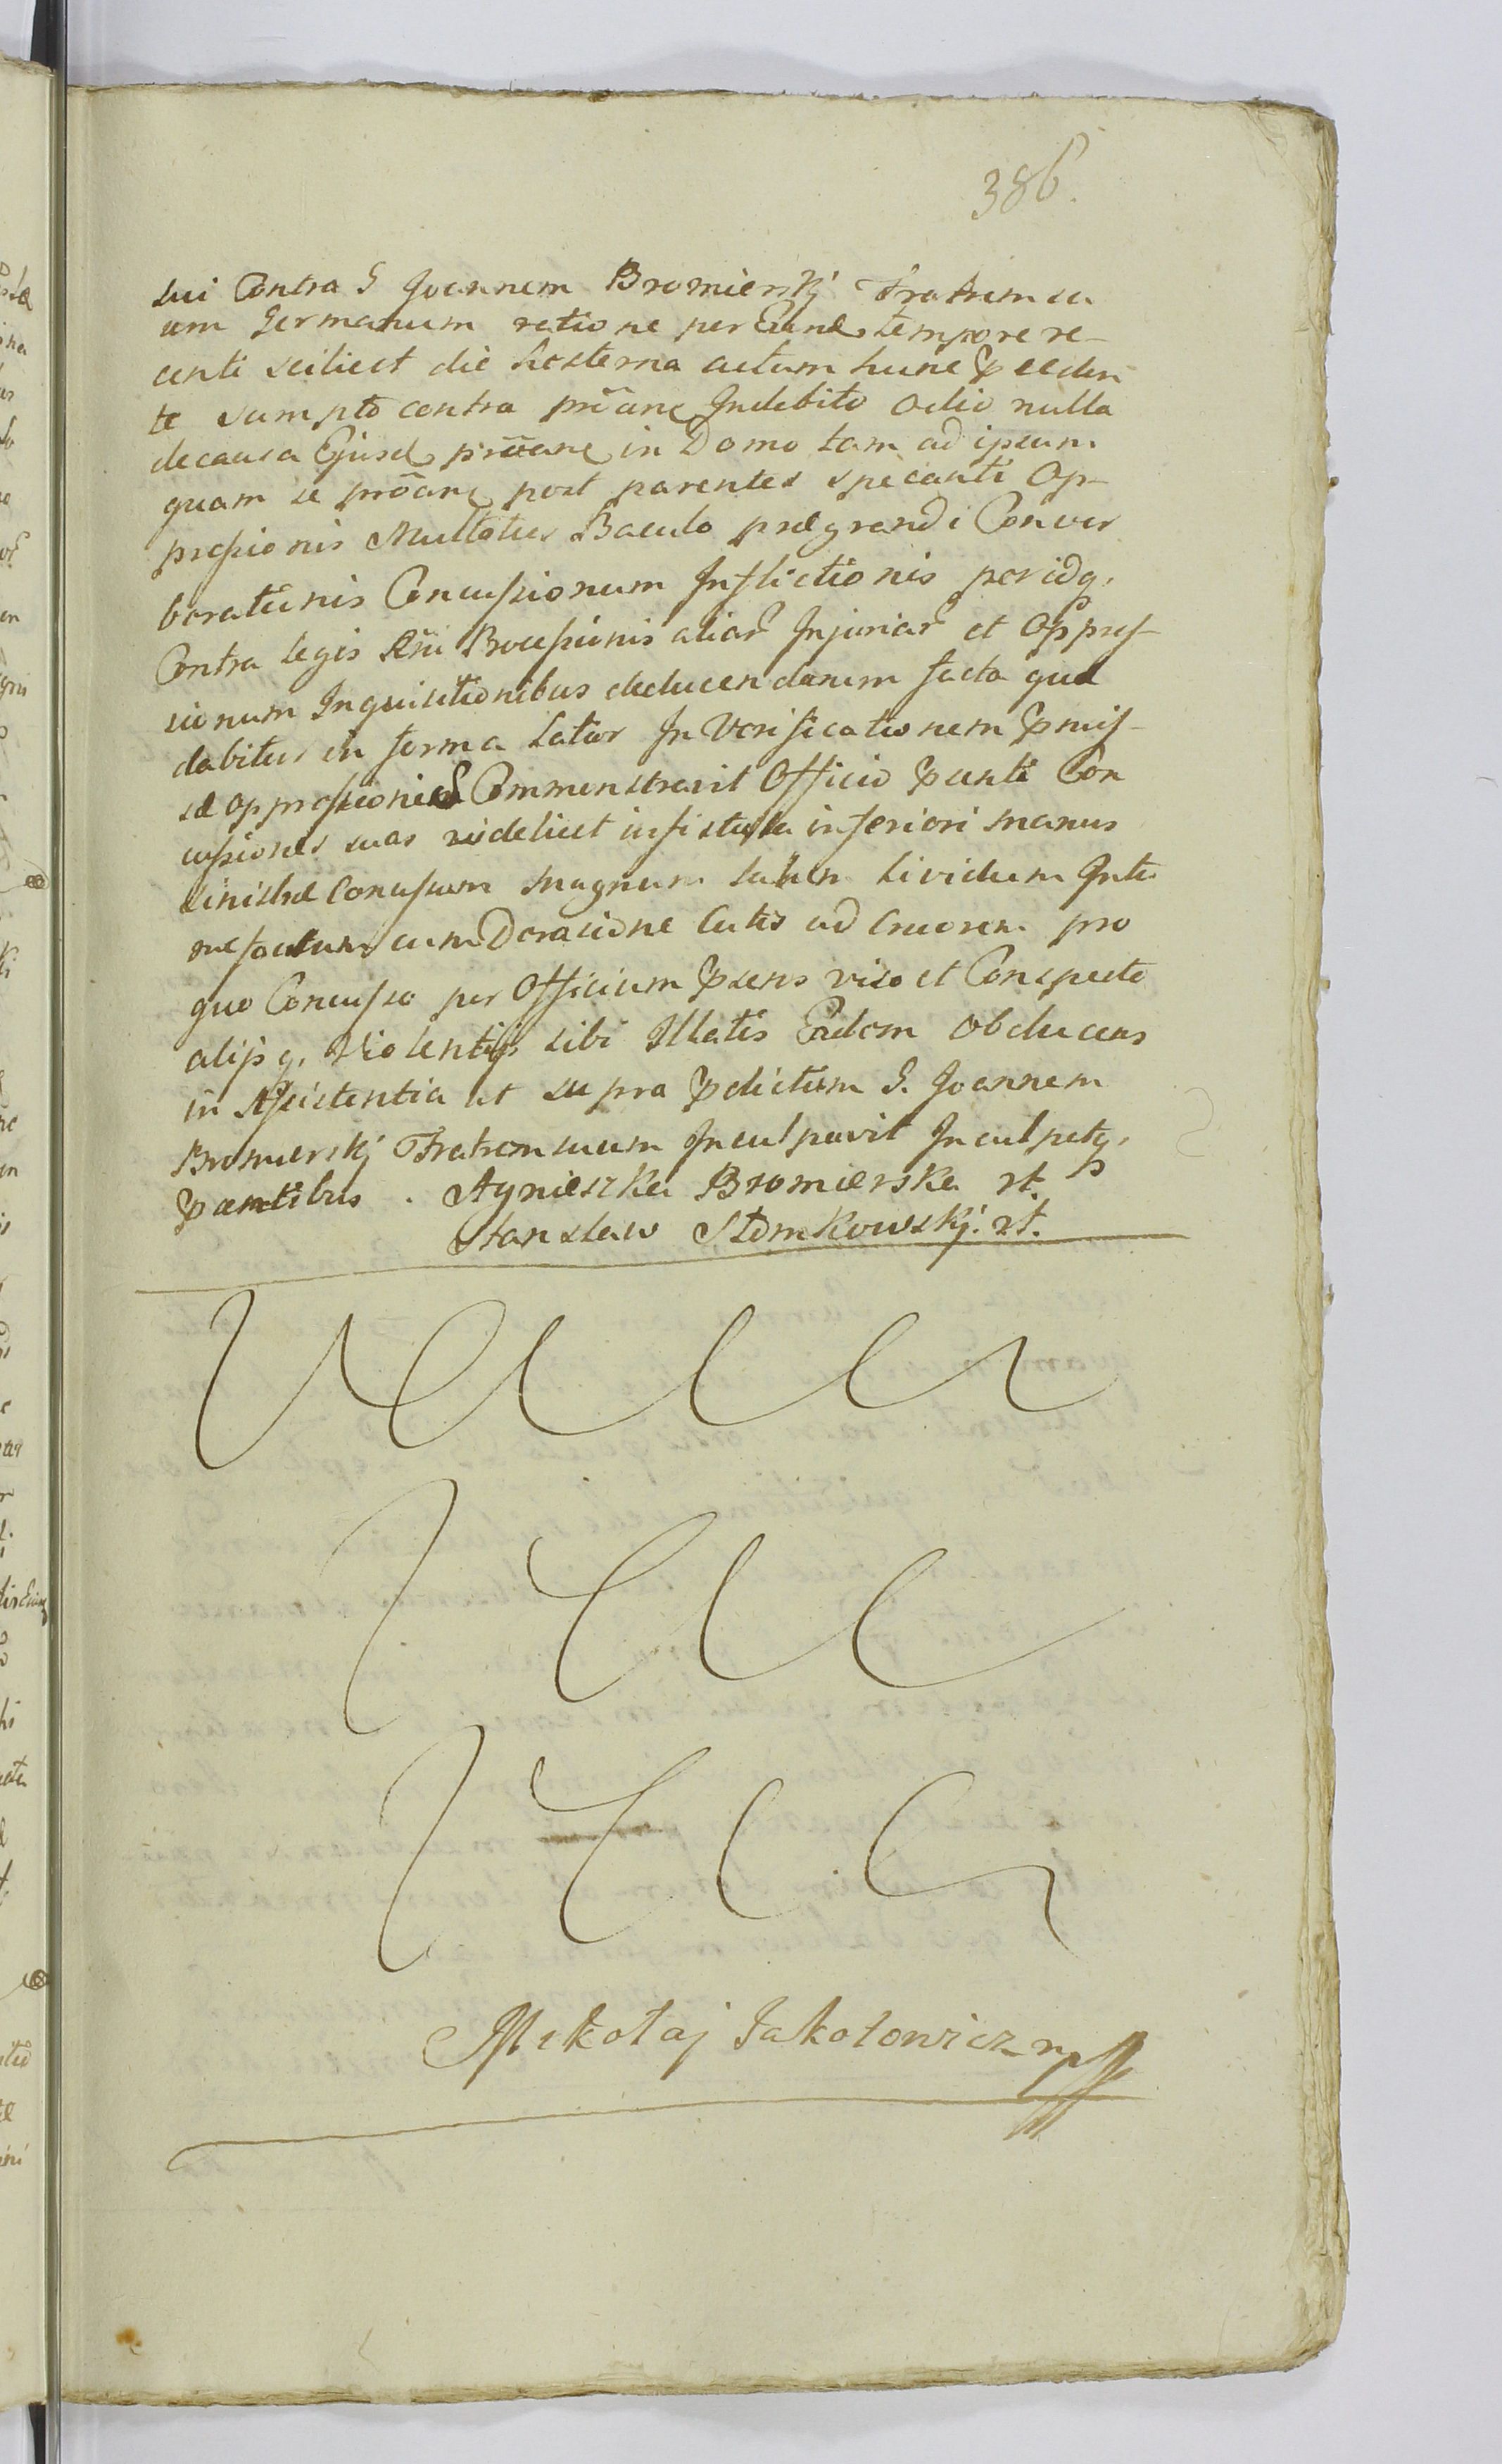 386.
sui Contra G Joannem Bromierskj Fratrem su
um Germanum ratione per Eund tempore re-
centi scilicet die hesterna actum hunc pceden
te sumpto contra prõane Indebito odio nulla
de causa Ejusd prõane in Domo tam ad ipsum
quam se prõane post parentes specanti Op-
pressionis Multoties Baculo prægrandi Conver
beratiõnis Concussionum Inflictionis per idq,
Contra legis Rni Processionis aliar Injuriar et Oppres-
sionum Inquisitionibus deducendarum facta quæ
dabitur in forma Latior In Verificationem pmis-
sæ oppressionis Commonstravit Officio psenti Con
cussiones suas videlicet in fistula inferiori manus
sinistræ Concussum magnum Lividum Intu
mefactum cum Derasione Cutis ad Cruorem pro
quo Concusso per Officium psens viso et Conspecto
alijsq, Violentijs sibi Illatis Eadem Obducens
in Assistentia ut supra pdictum G. Joannem
Bromierskj Fratrem suum Inculpavit Inculpatq,
psentibus . Agnieszka Bromierska rt.
Stanslaw Slomkowskj. rt.
Mikołaj Jakołowicz mp